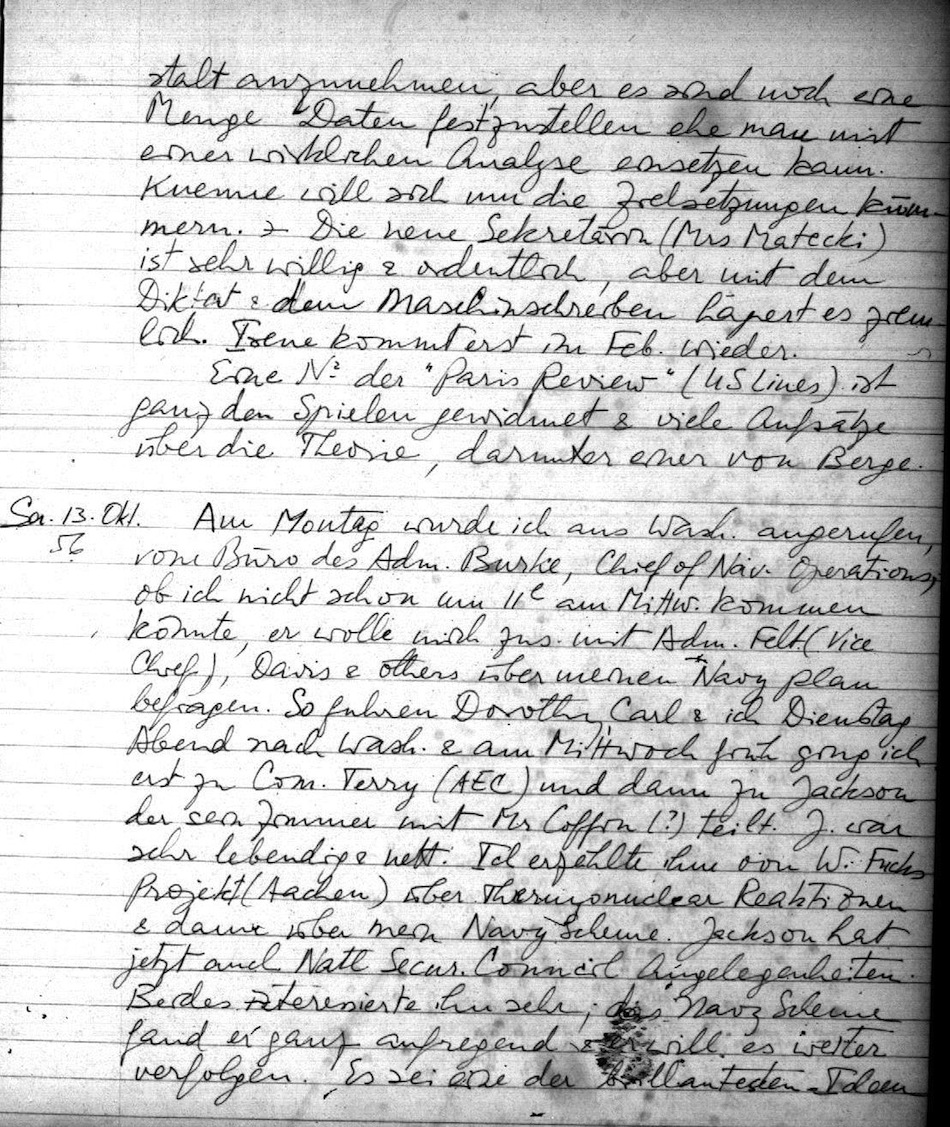 stalt anzunehmen, aber es sind noch eine
Menge Daten festzustellen ehe man mit
einer wirklichen Analyse einsetzen kann.
Kuenne will sich um die Zielsetzungen küm-
mern. – Die neue Sekretärin (Mrs Matecki)
ist sehr willig & ordentlich, aber mit dem
Diktat & dem Maschinschreiben hapert es ziem
lich. Irene kommt erst im Feb. wieder.
Eine Nº der "Paris Review" (US Lines) ist
ganz den Spielen gewidmet & viele Aufsätze
über die Theorie, darunter einer von Berge.
Sa. 13. Okt. Am Montag wurde ich aus Wash. angerufen,
56 vom Büro des Adm. Burke, Chief of Nav. Operations,
ob ich nicht schon um 11ᵉ am Mittw. kommen
könnte, er wolle mich zus. mit Adm. Felt (Vice
Chief), Davis & others über meinen Navy plan
befragen. So fuhren Dorothy, Carl & ich Dienstag
Abend nach Wash. & am Mittwoch früh ging ich
erst zu Com. Terry (AEC) und dann zu Jackson
der sein Zimmer mit Mr Coffin (?) teilt. J. war
sehr lebendig & nett. Ich erzählte ihm von W. Fucks
Projekt (Aachen) über Thermonuclear Reaktionen
& dann über mein Navy Scheme. Jackson hat
jetzt auch Natl Secur. Council Angelegenheiten.
Beides interessierte ihn sehr; das Navy Scheme
fand er ganz aufregend & er will es weiter
verfolgen. Es sei eine der brillantesten Ideen